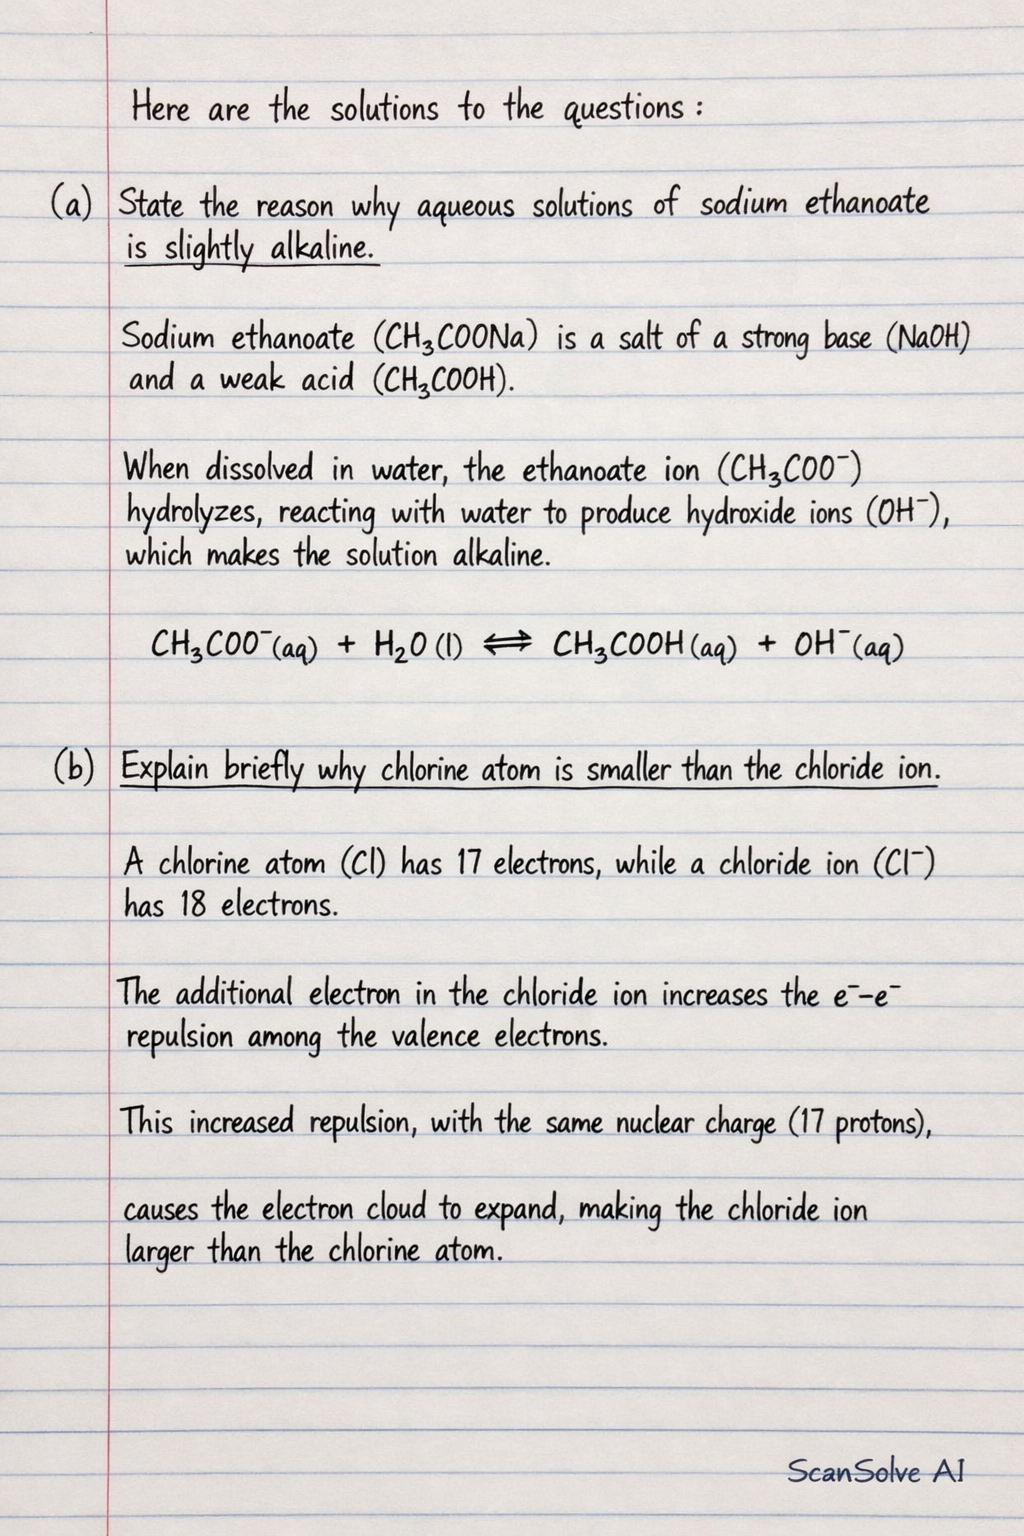 Here are the solutions to the questions :
(a) State the reason why aqueous solutions of sodium ethanoate
is slightly alkaline.
Sodium ethanoate (CH₃COONa) is a salt of a strong base (NaOH)
and a weak acid (CH₃COOH).
When dissolved in water, the ethanoate ion (CH₃COO⁻)
hydrolyzes, reacting with water to produce hydroxide ions (OH⁻),
which makes the solution alkaline.
CH₃COO⁻(aq) + H₂O (l) ⇌ CH₃COOH (aq) + OH⁻(aq)
(b) Explain briefly why chlorine atom is smaller than the chloride ion.
A chlorine atom (Cl) has 17 electrons, while a chloride ion (Cl⁻)
has 18 electrons.
The additional electron in the chloride ion increases the e⁻–e⁻
repulsion among the valence electrons.
This increased repulsion, with the same nuclear charge (17 protons),
causes the electron cloud to expand, making the chloride ion
larger than the chlorine atom.
ScanSolve AI